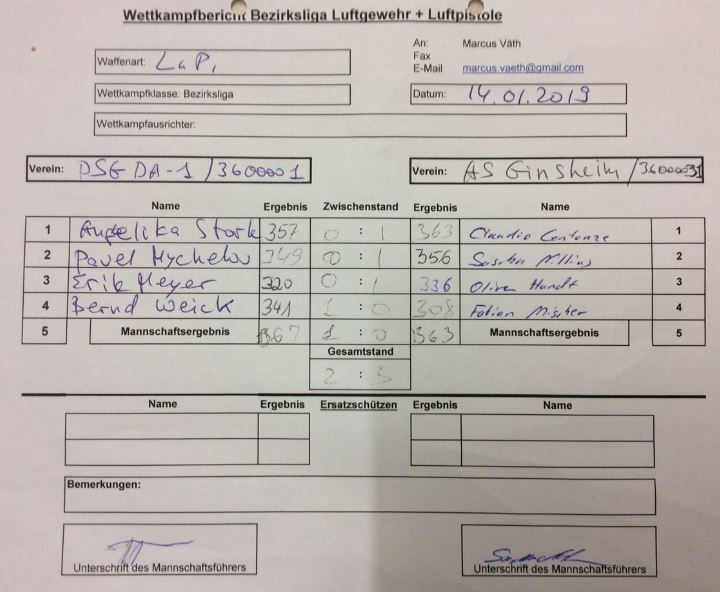 Wettkampfbericht Bezirksliga Luftgewehr + Luftpistole
Waffenart: LaPi
An: Marcus Väth
Fax
E-Mail marcus.vaeth@gmail.com
Wettkampfklasse: Bezirksliga
Datum: 14.01.2019
Wettkampfausrichter:
Verein: DSG DA-1 /3600001 Verein: AS Ginsheim /36000031
Name Ergebnis Zwischenstand Ergebnis Name
1 Angelika Stork 357 0 : 1 363 Claudio Centonze 1
2 Pavel Mychelov 349 0 : 1 356 Sascha 2
3 Erik Meyer 320 0 : 1 336 Oliver Hundt 3
4 Bernd Weick 341 1 : 0 308 Fabian 4
5 Mannschaftsergebnis 1367 1 : 0 1363 Mannschaftsergebnis 5
Gesamtstand
2 : 3
Name Ergebnis Ersatzschützen Ergebnis Name
Bemerkungen:
Unterschrift des Mannschaftsführers Unterschrift des Mannschaftsführers